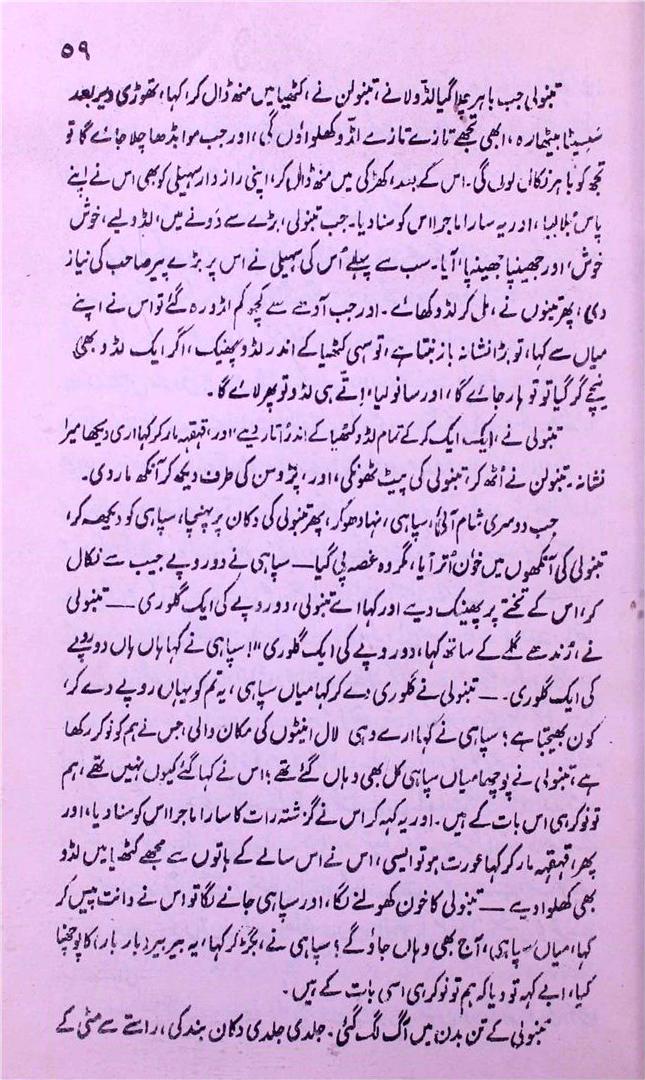 ۵۹
تنبولی جب باہر چلا گیا لڈو لانے، تنبولن نے، کٹھیا میں منھ ڈال کر، کہا، تھوڑی دیر بعد
بیٹھا رہ، ابھی تجھے تازے تازے لڈو کھلواؤں گی، اور جب موا بڈھا چلا جائے گا تو
تجھ کو باہر نکال لوں گی۔ اس کے بعد، کھڑکی میں منھ ڈال کر، اپنی راز دار سہیلی کو بھی اس نے اپنے
پاس بُلا لیا، اور یہ سارا ماجرا اس کو سنا دیا۔ جب تنبولی، بڑے سے دَونے میں، لڈو لیے، خوش
خوش، اور جھینپا جھینپا، آیا۔ سب سے پہلے اُس کی سہیلی نے اس پر بڑے پیر صاحب کی نیاز
دی، پھر تینوں نے، مل کر لڈو کھائے۔ اور جب آدھے سے کچھ کم لڈو رہ گئے تو اس نے اپنے
میاں سے کہا، تو بڑا نشانہ باز بنتا ہے، تو سہی کٹھیا کے اندر لڈو پھینک، اگر ایک لڈو بھی
نیچے گر گیا تو تو ہار جائے گا، اور سانولیا، اتّے ہی لڈو تو پھر لائے گا۔
تنبولی نے، ایک ایک کر کے تمام لڈو کٹھیا کے اندر اُتار دیے، اور، قہقہہ مار کر کہا اری دیکھا میرا
نشانہ۔ تنبولن نے اُٹھ کر، تنبولی کی پیٹ ٹھونکی، اور، پڑوسن کی طرف دیکھ کر آنکھ مار دی۔
جب دوسری شام آئی، سپاہی، نہا دھو کر، پھر تنبولی کی دکان پر پہنچا، سپاہی کو دیکھ کر،
تنبولی کی آنکھوں میں خون اُتر آیا، مگر وہ غصہ پی گیا — سپاہی نے دو روپے جیب سے نکال
کر، اس کے تختے پر پھینک دیے اور کہا اے تنبولی، دو روپے کی ایک گلوری — تنبولی
نے، رُندھے گلے کے ساتھ کہا، دو روپے کی ایک گلوری! سپاہی نے کہا ہاں ہاں دو روپے
کی ایک گلوری۔ — تنبولی نے گلوری دے کر کہا میاں سپاہی، یہ تم کو یہاں روپے دے کر،
کون بھیجتا ہے؟ سپاہی نے کہا ارے وہی لال اینٹوں کی مکان والی، جس نے ہم کو نوکر رکھا
ہے، تنبولی نے پوچھا میاں سپاہی کل بھی وہاں گئے تھے؟ اس نے کہا گئے کیوں نہیں تھے، ہم
تو نوکر ہی اس بات کے ہیں۔ اور یہ کہہ کر اس نے گزشتہ رات کا سارا ماجرا اس کو سنا دیا، اور
پھر، قہقہہ مار کر کہا عورت ہو تو ایسی، اس نے اس سالے کے ہاتوں سے مجھے کٹھیا میں لڈو
بھی کھلوا دیے — تنبولی کا خون کھولنے لگا، اور سپاہی جانے لگا تو اس نے دانت پیس کر
کہا، میاں سپاہی، آج بھی وہاں جاؤ گے؟ سپاہی نے، بگڑ کر کہا، یہ بیر بیر (بار بار) کا پوچھنا
کیا، ابے کہہ تو دیا کہ ہم تو نوکر ہی اسی بات کے ہیں۔
تنبولی کے تن بدن میں آگ لگ گئی۔ جلدی جلدی دکان بند کی، راستے سے مٹی کے